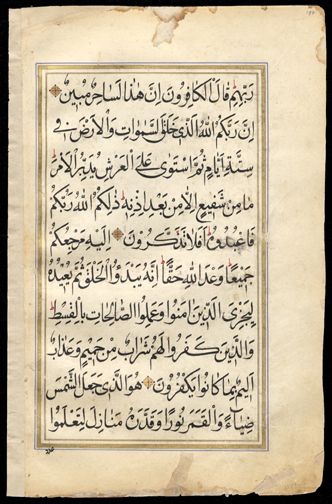 رَبِّهِمْ قَالَ الْكَافِرُونَ إِنَّ هٰذَا لَسَاحِرٌ مُبِينٌ
إِنَّ رَبَّكُمُ اللّٰهُ الَّذِي خَلَقَ السَّمٰوَاتِ وَالْأَرْضَ فِي
سِتَّةِ أَيَّامٍ ثُمَّ اسْتَوَى عَلَى الْعَرْشِ يُدَبِّرُ الْأَمْرَ
مَا مِنْ شَفِيعٍ إِلَّا مِنْ بَعْدِ إِذْنِهِ ذٰلِكُمُ اللّٰهُ رَبُّكُمْ
فَاعْبُدُوهُ أَفَلَا تَذَكَّرُونَ إِلَيْهِ مَرْجِعُكُمْ
جَمِيعًا وَعْدَ اللّٰهِ حَقًّا إِنَّهُ يَبْدَؤُا الْخَلْقَ ثُمَّ يُعِيدُهُ
لِيَجْزِيَ الَّذِينَ اٰمَنُوا وَعَمِلُوا الصَّالِحَاتِ بِالْقِسْطِ
وَالَّذِينَ كَفَرُوا لَهُمْ شَرَابٌ مِنْ حَمِيمٍ وَعَذَابٌ
أَلِيمٌ بِمَا كَانُوا يَكْفُرُونَ هُوَ الَّذِي جَعَلَ الشَّمْسَ
ضِيَاءً وَالْقَمَرَ نُورًا وَقَدَّرَهُ مَنَازِلَ لِتَعْلَمُوا